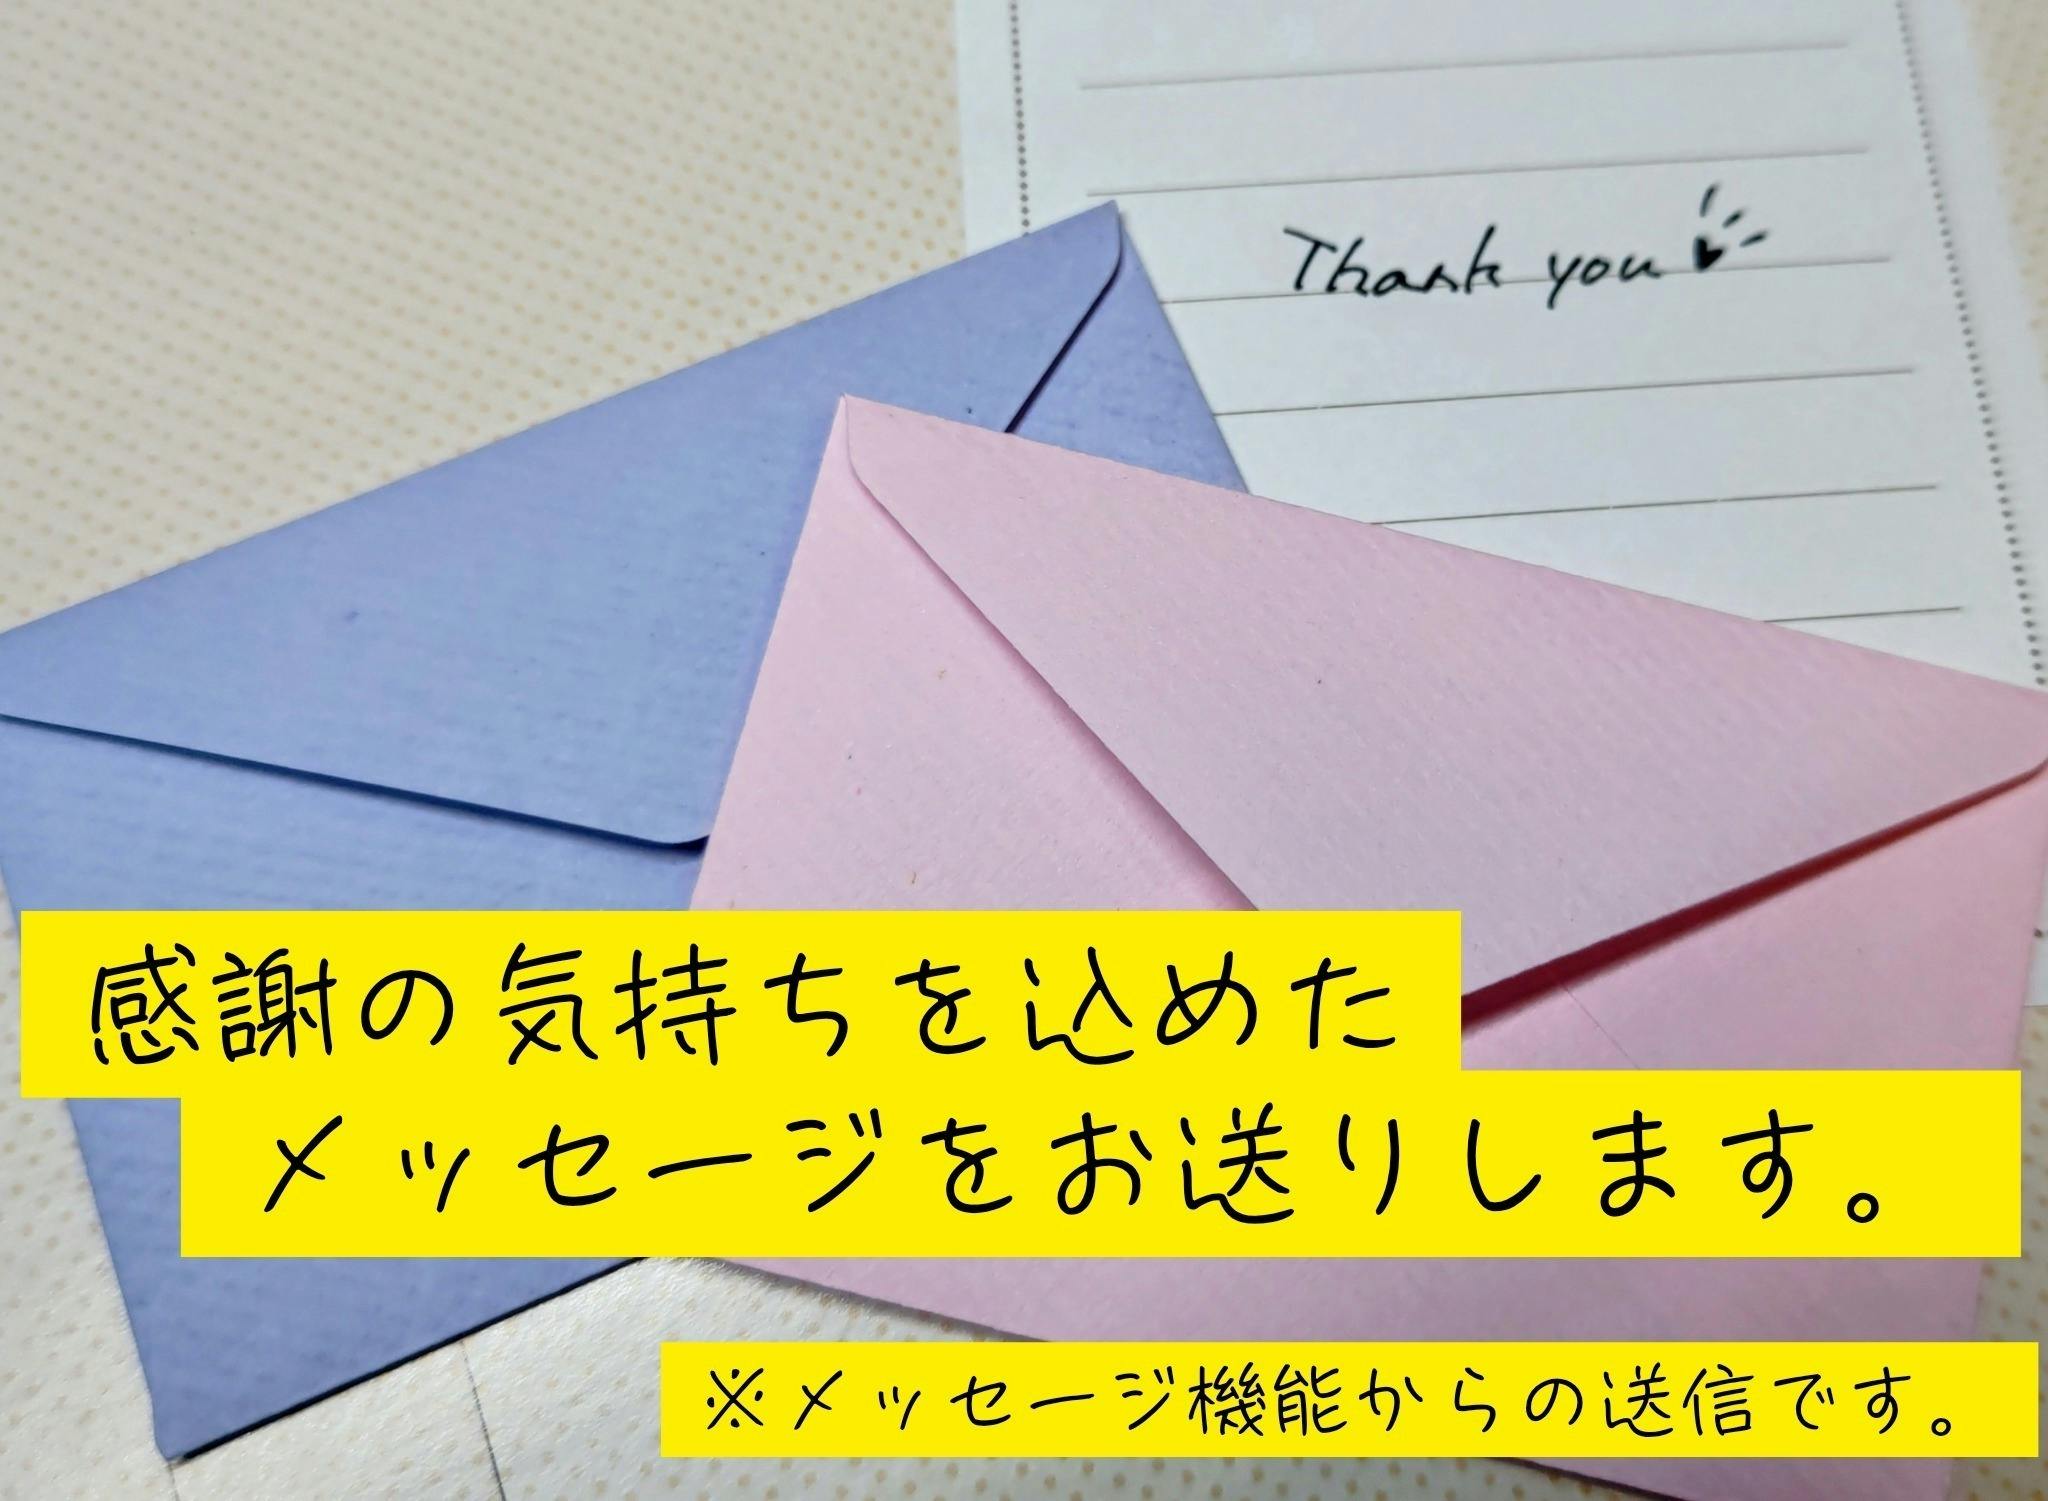 Thank you
感謝の気持ちを込めた
メッセージをお送りします。
※メッセージ機能からの送信です。